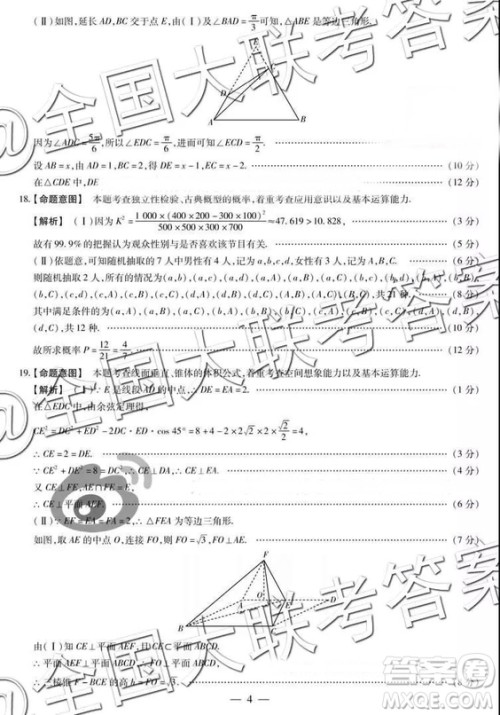 (Ⅱ)如图,延长 AD,BC 交于点 E,由(Ⅰ)及∠BAD=π/3可知,△ABE 是等边三角形.
E
D
C
A
B
因为∠ADC=5π/6,所以∠EDC=π/6,进而可知∠ECD=π/2.
设 AB=x,由 AD=1,BC=2,得 DE=x-1,EC=x-2. (10 分)
在△CDE 中,DE (12 分)
18.【命题意图】 本题考查独立性检验、古典概型的概率,着重考查应用意识以及基本运算能力.
【解析】 (Ⅰ)因为 K²=1 000×(400×200-300×100)²/500×500×300×700≈47.619>10.828, (3 分)
故有 99.9%的把握认为观众性别与是否喜欢该节目有关. (5 分)
(Ⅱ)依题意,可知随机抽取的 7 人中男性有 4 名,记为 a,b,c,d,女性有 3 名,记为 A,B,C.
则随机抽取 2 人,所有的情况为(a,b),(a,c),(a,d),(a,A),(a,B),(a,C),(b,c),(b,d),(b,A),(b,B),
(b,C),(c,d),(c,A),(c,B),(c,C),(d,A),(d,B),(d,C),(A,B),(A,C),(B,C),共 21 种, (8 分)
其中满足条件的为(a,A),(a,B),(a,C),(b,A),(b,B),(b,C),(c,A),(c,B),(c,C),(d,A),(d,
B),(d,C),共 12 种.
故所求概率 P=12/21=4/7.
19.【命题意图】 本题考查线面垂直、锥体的体积公式,着重考查空间想象能力以及基本运算能力.
【解析】 (Ⅰ)∵E 是线段 AD 的中点,∴DE=EA=2. (1 分)
在△CDE 中,由余弦定理得,
CE²=DC²+ED²-2DC·ED·cos 45°=8+4-2×2√2×2×√2/2=4, (3 分)
∴CE=2=DE. (4 分)
∵CE²+DE²=8=DC²,∴CE⊥EA.
又 CE⊥FE,AE∩FE=E,
∴CE⊥平面 AEF. (6 分)
(Ⅱ)∵EF=EA=FA=2,∴△FEA 为等边三角形.
如图,取 AE 的中点 O,连接 FO,则 FO=√3,FO⊥AE. (7 分)
F
A
O
E
D
B
C
由(Ⅰ)知 CE⊥平面 AEF,且 CE⊂平面 ABCD,
∴平面 AEF⊥平面 ABCD,∴FO⊥平面 ABCD,
∴三棱锥 F-BCE 的高 h=FO=√3.
— 4 —
@全国大联考答案
@全国大联考答案
@全国大联考答案
答案圈
MXQE.COM